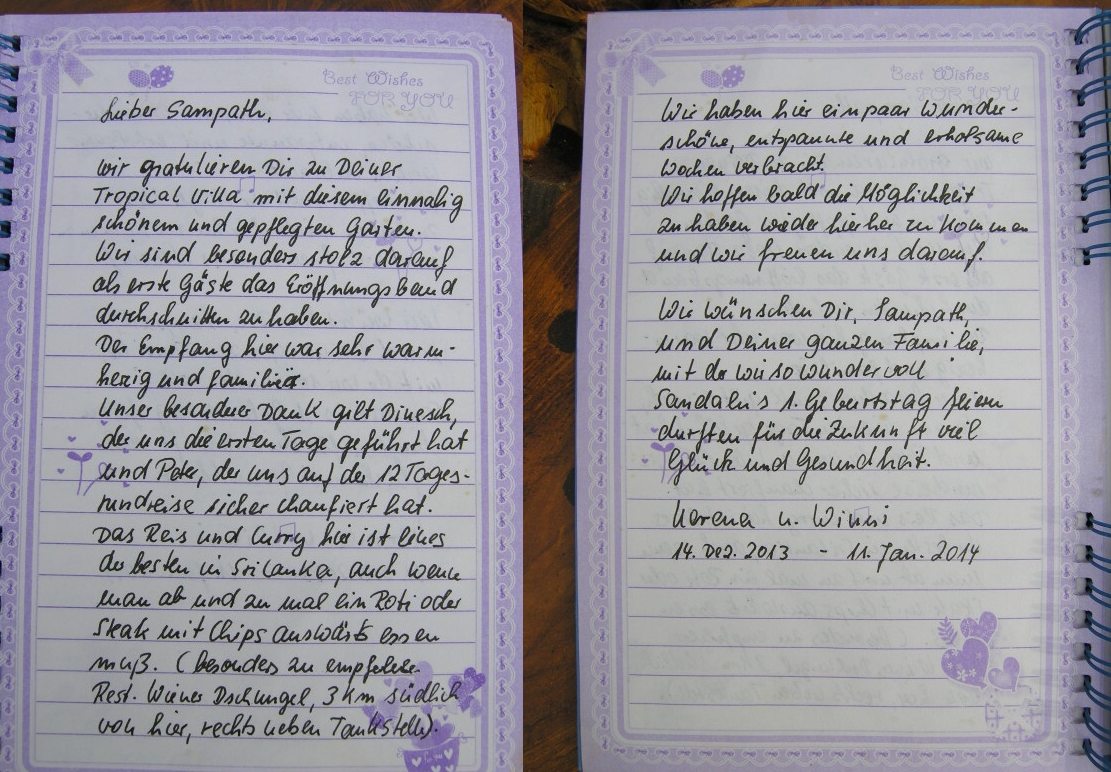 Best Wishes
FOR YOU
Lieber Sampath,
wir gratulieren Dir zu Deiner
Tropical Villa mit diesem einmalig
schönem und gepflegten Garten.
Wir sind besonders stolz darauf
als erste Gäste das Eröffnungsband
durchschnitten zu haben.
Der Empfang hier war sehr warm-
herzig und familiär.
Unser besonderer Dank gilt Dinesch,
der uns die ersten Tage geführt hat
und Peter, der uns auf der 12 Tages-
rundreise sicher chaufiert hat.
Das Reis und Curry hier ist eines
der besten in Sri Lanka, auch wenn
man ab und zu mal ein Roti oder
Steak mit Chips auswärts essen
muß. (besonders zu empfehlen
Rest. Wiener Dschungel, 3 km südlich
von hier, rechts neben Tankstelle).
Best Wishes
FOR YOU
Wir haben hier ein paar wunder-
schöne, entspannte und erholsame
Wochen verbracht.
Wir hoffen bald die Möglichkeit
zu haben wieder hierher zu kommen
und wir freuen uns darauf.
Wir wünschen Dir, Sampath,
und Deiner ganzen Familie,
mit der wir so wundervoll
Sandalis 1. Geburtstag feiern
durften für die Zukunft viel
Glück und Gesundheit.
Verena u. Winni
14. Dez. 2013 - 11. Jan. 2014